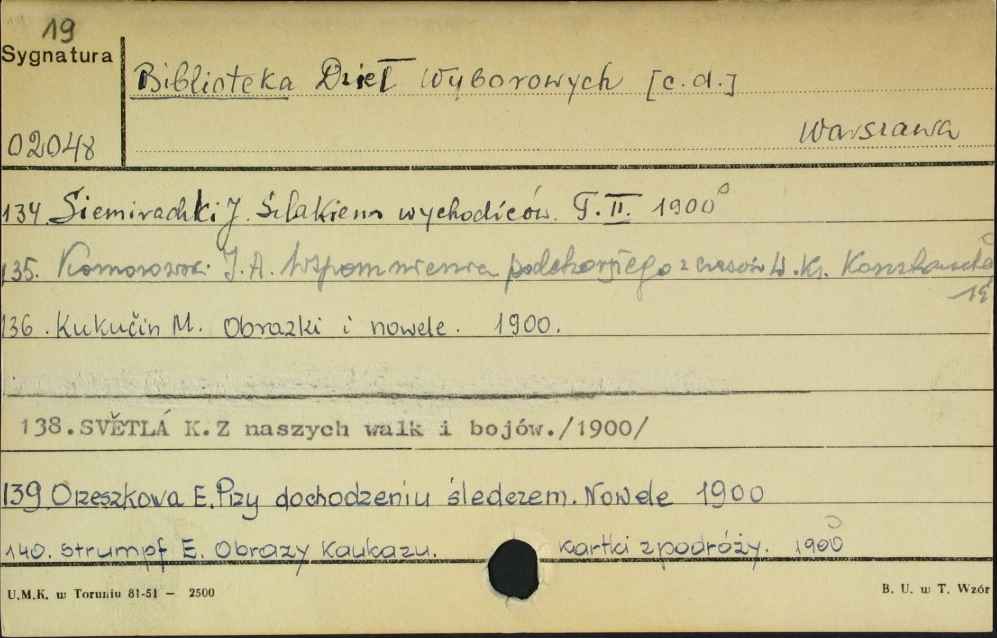 19
Sygnatura
Biblioteka Dzieł Wyborowych [c.d.]
02048
Warszawa
134. Siemiradzki J. Szlakiem wychodźców. T. II. 1900
135. Komorowski J. A. Wspomnienia podchorążego z czasów W. Ks.
136. Kukučin M. Obrazki i nowele. 1900.
138.SVĚTLÁ K.Z naszych walk i bojów./1900/
139. Orzeszkowa E. Przy dochodzeniu śledczem. Nowele 1900
140. Strumpf E. Obrazy Kaukazu. Kartki z podróży. 1900
U.M.K. w Toruniu 81-51 — 2500
B. U. w T. Wzór